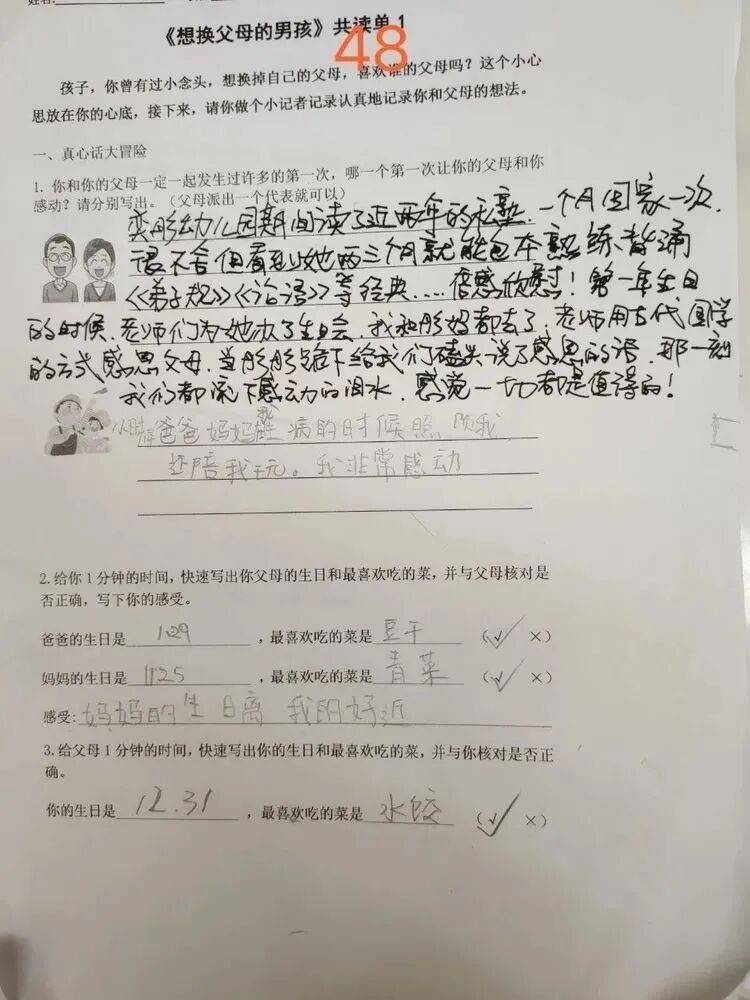 《想换父母的男孩》共读单 1
48
孩子，你曾有过小念头，想换掉自己的父母，喜欢谁的父母吗？这个小心
思放在你的心底，接下来，请你做个小记者记录认真地记录你和父母的想法。
一、真心话大冒险
1. 你和你的父母一定一起发生过许多的第一次，哪一个第一次让你的父母和你
感动？请分别写出。（父母派出一个代表就可以）
奕彤幼儿园期间读了近两年的私塾，一个月回家一次，
很不舍但看到她两三个月就能包本熟练背诵
《弟子规》《论语》等经典……倍感欣慰！第一年生日
的时候，老师们为她办了生日会，我和彤妈都去了，老师用古代国学
的方式感恩父母，当彤彤跪下给我们磕头说了感恩的话，那一刻
我们都流下感动的泪水，感觉一切都是值得的！
小时 爸爸妈妈 我 病的时候照顾我，
还陪我玩。我非常感动
2.给你1分钟的时间，快速写出你父母的生日和最喜欢吃的菜，并与父母核对是
否正确，写下你的感受。
爸爸的生日是 1.29 ，最喜欢吃的菜是 豆干 （√ ×）
妈妈的生日是 1125 ，最喜欢吃的菜是 青菜 （√ ×）
感受：妈妈的生日离我的好近
3.给父母1分钟的时间，快速写出你的生日和最喜欢吃的菜，并与你核对是否正
确。
你的生日是 12.31 ，最喜欢吃的菜是 水饺 （√ ×）